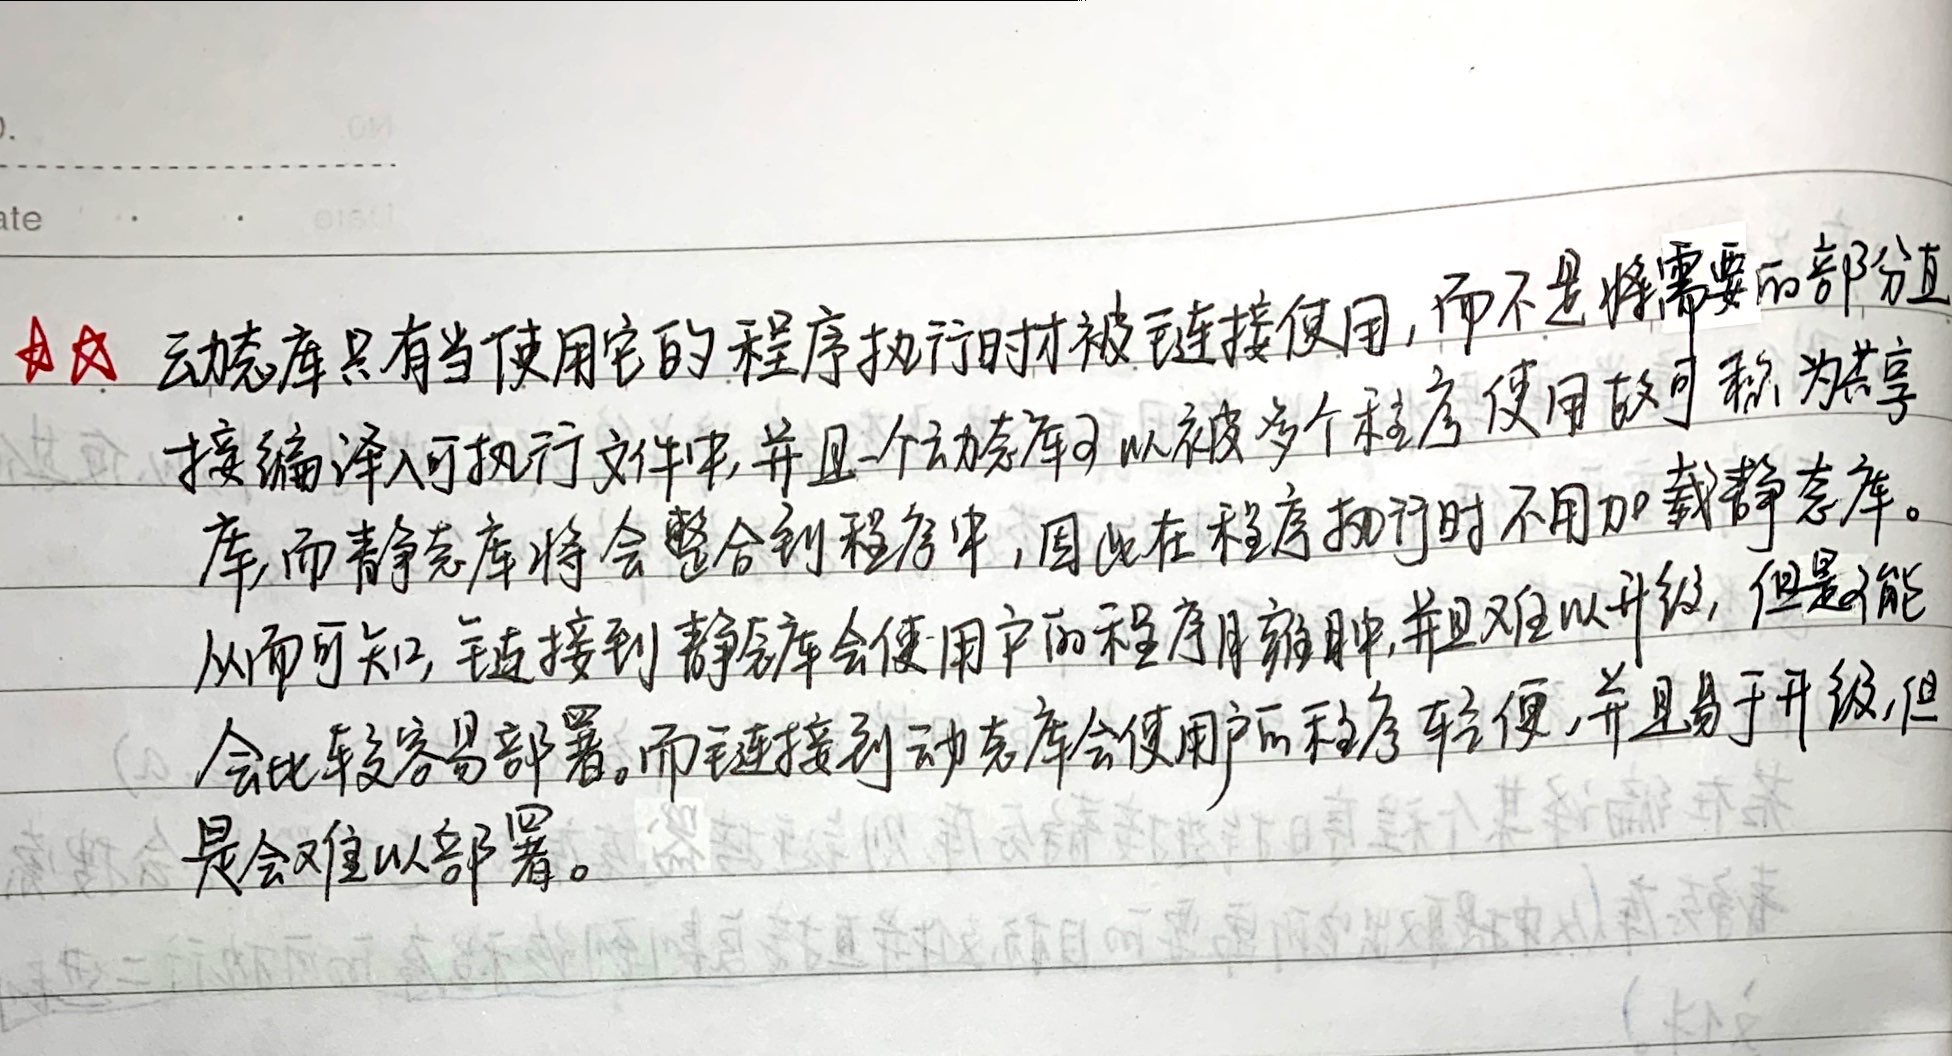 动态库只有当使用它的程序执行时才被链接使用,而不是将需要的部分直
接编译入可执行文件中,并且一个动态库可以被多个程序使用故可称为共享
库,而静态库将会整合到程序中,因此在程序执行时不用加载静态库。
从而可知,链接到静态库会使用户的程序臃肿,并且难以升级,但是可能
会比较容易部署。而链接到动态库会使用户的程序轻便,并且易于升级,但
是会难以部署。